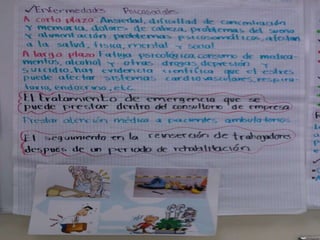 ✓Enfermedades Psicosociales
A corto plazo: Ansiedad, dificultad de concentración
y memoria, dolores de cabeza, problemas del sueño
y alimentación problemas psicosomáticos, afectan
a la salud, física, mental y social
A largo plazo Fatiga psicológica, consumo de medica-
mentos, alcohol y otras drogas, depresión
suicidio, hay evidencia científica que el estres
puede afectar sistemas cardiovasculares, respira-
torio, endocrino, etc.
El tratamiento de emergencia que se
puede prestar dentro del consultorio de empresa
Prestar atención médica a pacientes ambulatorios
El seguimiento en la reinserción de trabajadores
después de un periodo de rehabilitación